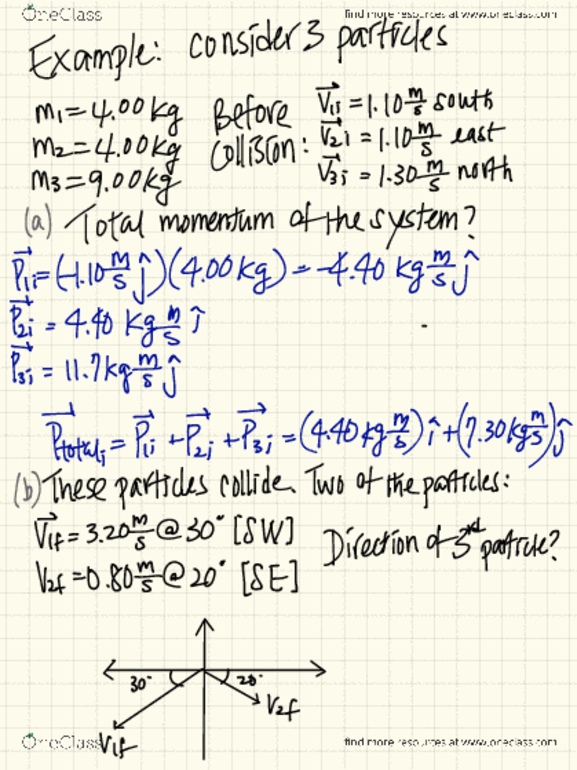 OneClass find more resources at www.oneclass.com
Example: consider 3 particles
m₁=4.00kg Before V⃗₁ᵢ=1.10 m/s south
m₂=4.00kg Collision: V⃗₂ᵢ=1.10 m/s east
m₃=9.00kg V⃗₃ᵢ=1.30 m/s north
(a) Total momentum of the system?
P⃗₁ᵢ=(-1.10 m/s ĵ)(4.00kg)=-4.40 kg m/s ĵ
P⃗₂ᵢ = 4.40 kg m/s î
P⃗₃ᵢ = 11.7 kg m/s ĵ
P⃗totalᵢ = P⃗₁ᵢ + P⃗₂ᵢ + P⃗₃ᵢ = (4.40 kg m/s) î + (7.30 kg m/s) ĵ
(b) These particles collide. Two of the particles:
V⃗₁f = 3.20 m/s @ 30° [SW] Direction of 3rd particle?
V₂f = 0.80 m/s @ 20° [SE]
30° 20°
V₂f
V₁f
OneClass find more resources at www.oneclass.com